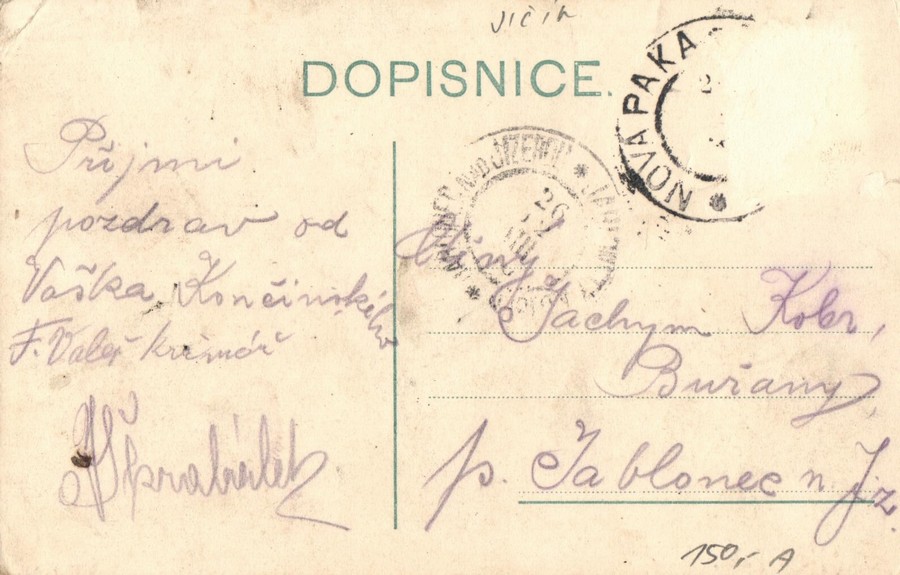 Jičín
DOPISNICE.
NOVÁ PAKA *
NAD JIZEROU *
26
Přijmi
pozdrav od
Vaška Končinského
F. Valeš
Ctěný
Jachym Kobr,
Buřany
p. Jablonec n. Jiz.
150,- A